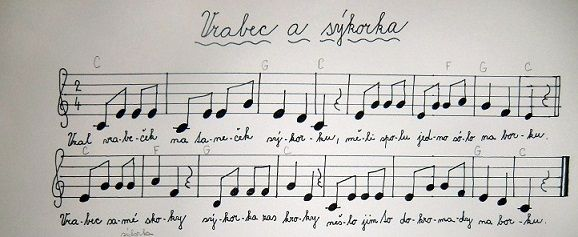 Vrabec a sýkorka
C G C F G
2
4
Vzal vra-be-ček na ta-ne-ček sý-kor-ku, mě-li spo-lu jed-no só-lo na bor-ku.
C F G C F G C
Vra-bec sa-mé sko-ky sý-kor-ka zas kro-ky něš-lo jim to do-hro-ma-dy na bor-ku.
sýkorka